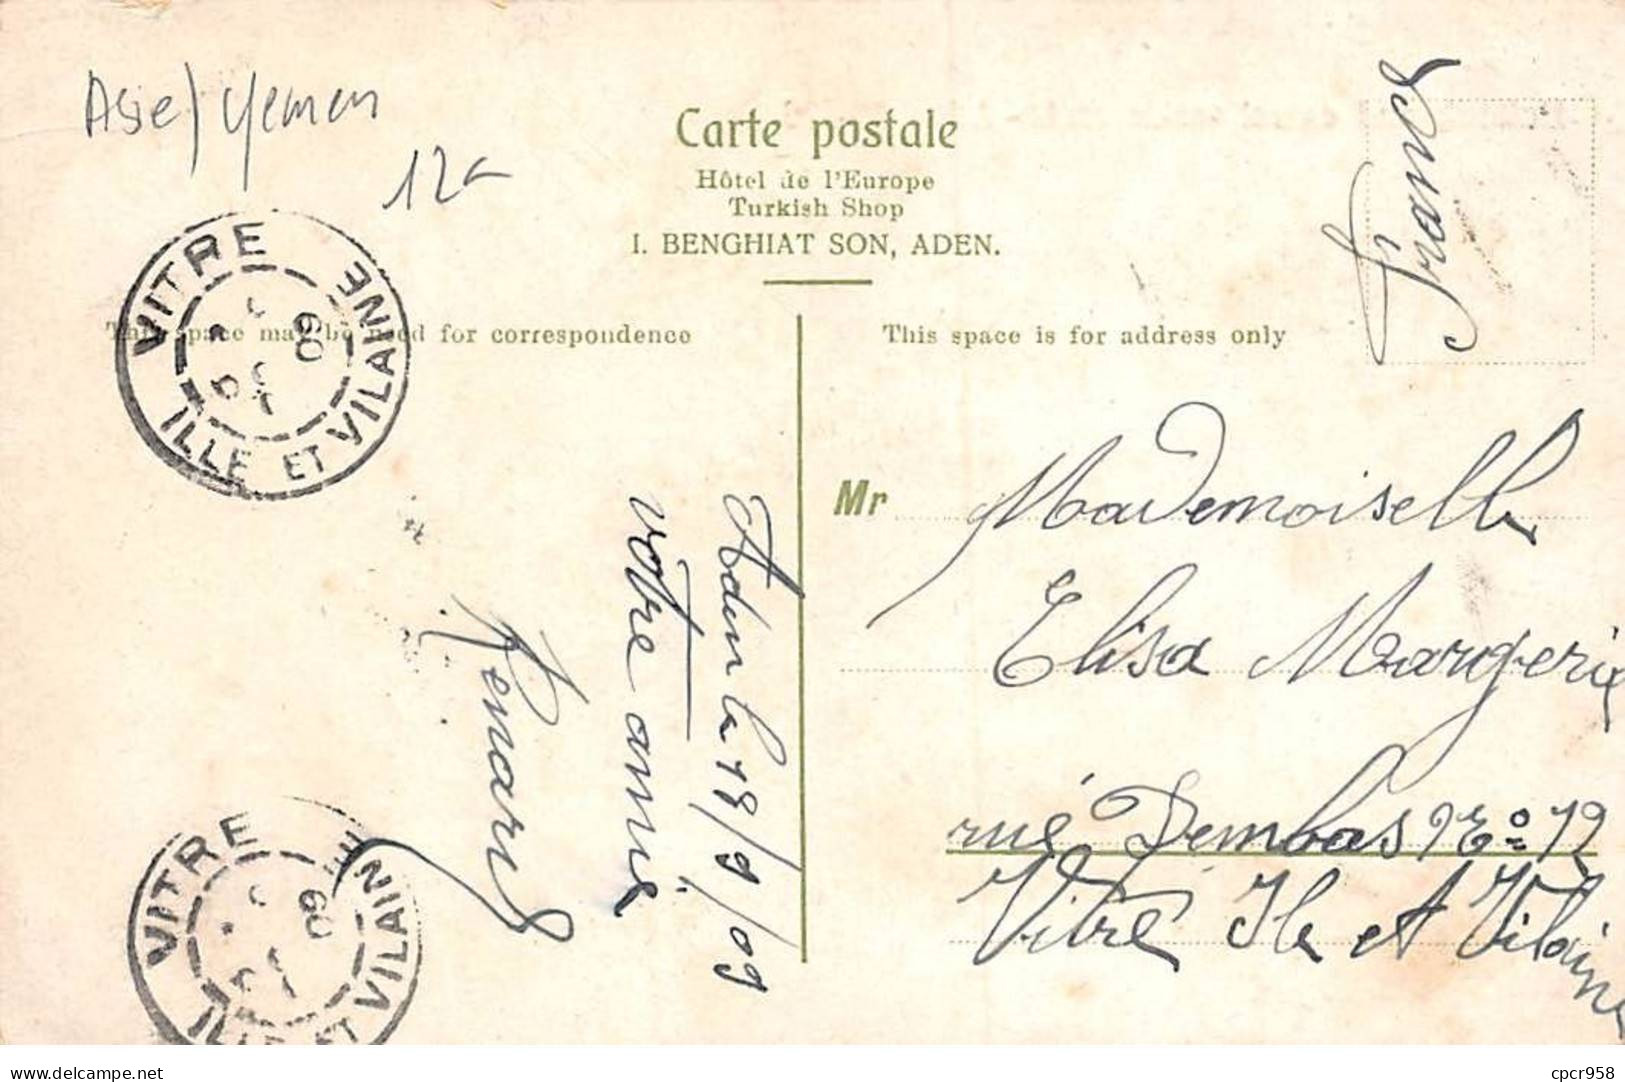 Asie / Yemen
12-
Carte postale
Hôtel de l'Europe
Turkish Shop
I. BENGHIAT SON, ADEN.
France
VITRE
ILLE ET VILAINE
09
This space may be used for correspondence
This space is for address only
Aden le 18/9/09
votre amie
Renard
Mr Mademoiselle
Elisa Margerie
rue Dembas No 12
Vitré Ile et Vilaine
VITRE
ILLE ET VILAINE
09
www.delcampe.net
cpcr958